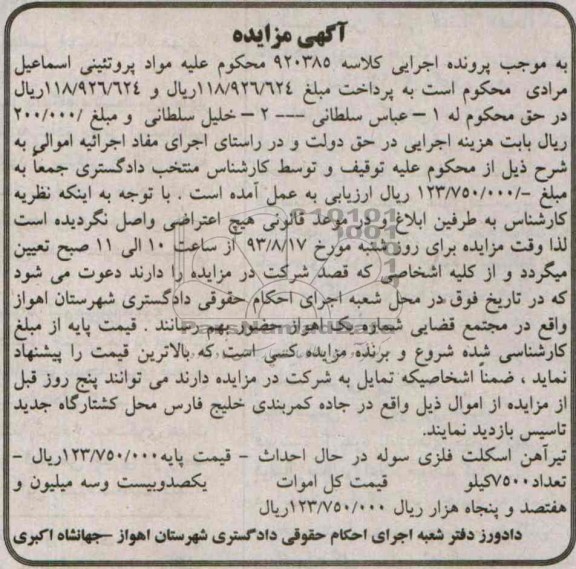 آگهی مزایده
به موجب پرونده اجرایی کلاسه ۹۲۰۳۸۵ محکوم علیه مواد پروتئینی اسماعیل
مرادی محکوم است به پرداخت مبلغ ۱۱۸/۹۲۶/۶۲۴ریال و ۱۱۸/۹۲۶/۶۲۴ریال
در حق محکوم له ۱ – عباس سلطانی --- ۲ – خلیل سلطانی و مبلغ /۲۰۰/۰۰۰
ریال بابت هزینه اجرایی در حق دولت و در راستای اجرای مفاد اجرائیه اموالی به
شرح ذیل از محکوم علیه توقیف و توسط کارشناس منتخب دادگستری جمعاً به
مبلغ –/۱۲۳/۷۵۰/۰۰۰ ریال ارزیابی به عمل آمده است . با توجه به اینکه نظریه
کارشناس به طرفین ابلاغ در موعد قانونی هیچ اعتراضی واصل نگردیده است
لذا وقت مزایده برای روز شنبه مورخ ۹۳/۸/۱۷ از ساعت ۱۰ الی ۱۱ صبح تعیین
میگردد و از کلیه اشخاصی که قصد شرکت در مزایده را دارند دعوت می شود
که در تاریخ فوق در محل شعبه اجرای احکام حقوقی دادگستری شهرستان اهواز
واقع در مجتمع قضایی شماره یک اهواز حضور بهم رسانند . قیمت پایه از مبلغ
کارشناسی شده شروع و برنده مزایده کسی است که بالاترین قیمت را پیشنهاد
نماید ، ضمناً اشخاصیکه تمایل به شرکت در مزایده دارند می توانند پنج روز قبل
از مزایده از اموال ذیل واقع در جاده کمربندی خلیج فارس محل کشتارگاه جدید
تاسیس بازدید نمایند.
تیرآهن اسکلت فلزی سوله در حال احداث - قیمت پایه۱۲۳/۷۵۰/۰۰۰ریال -
تعداد۷۵۰۰کیلو قیمت کل اموات یکصدوبیست وسه میلیون و
هفتصد و پنجاه هزار ریال ۱۲۳/۷۵۰/۰۰۰ریال
دادورز دفتر شعبه اجرای احکام حقوقی دادگستری شهرستان اهواز –جهانشاه اکبری